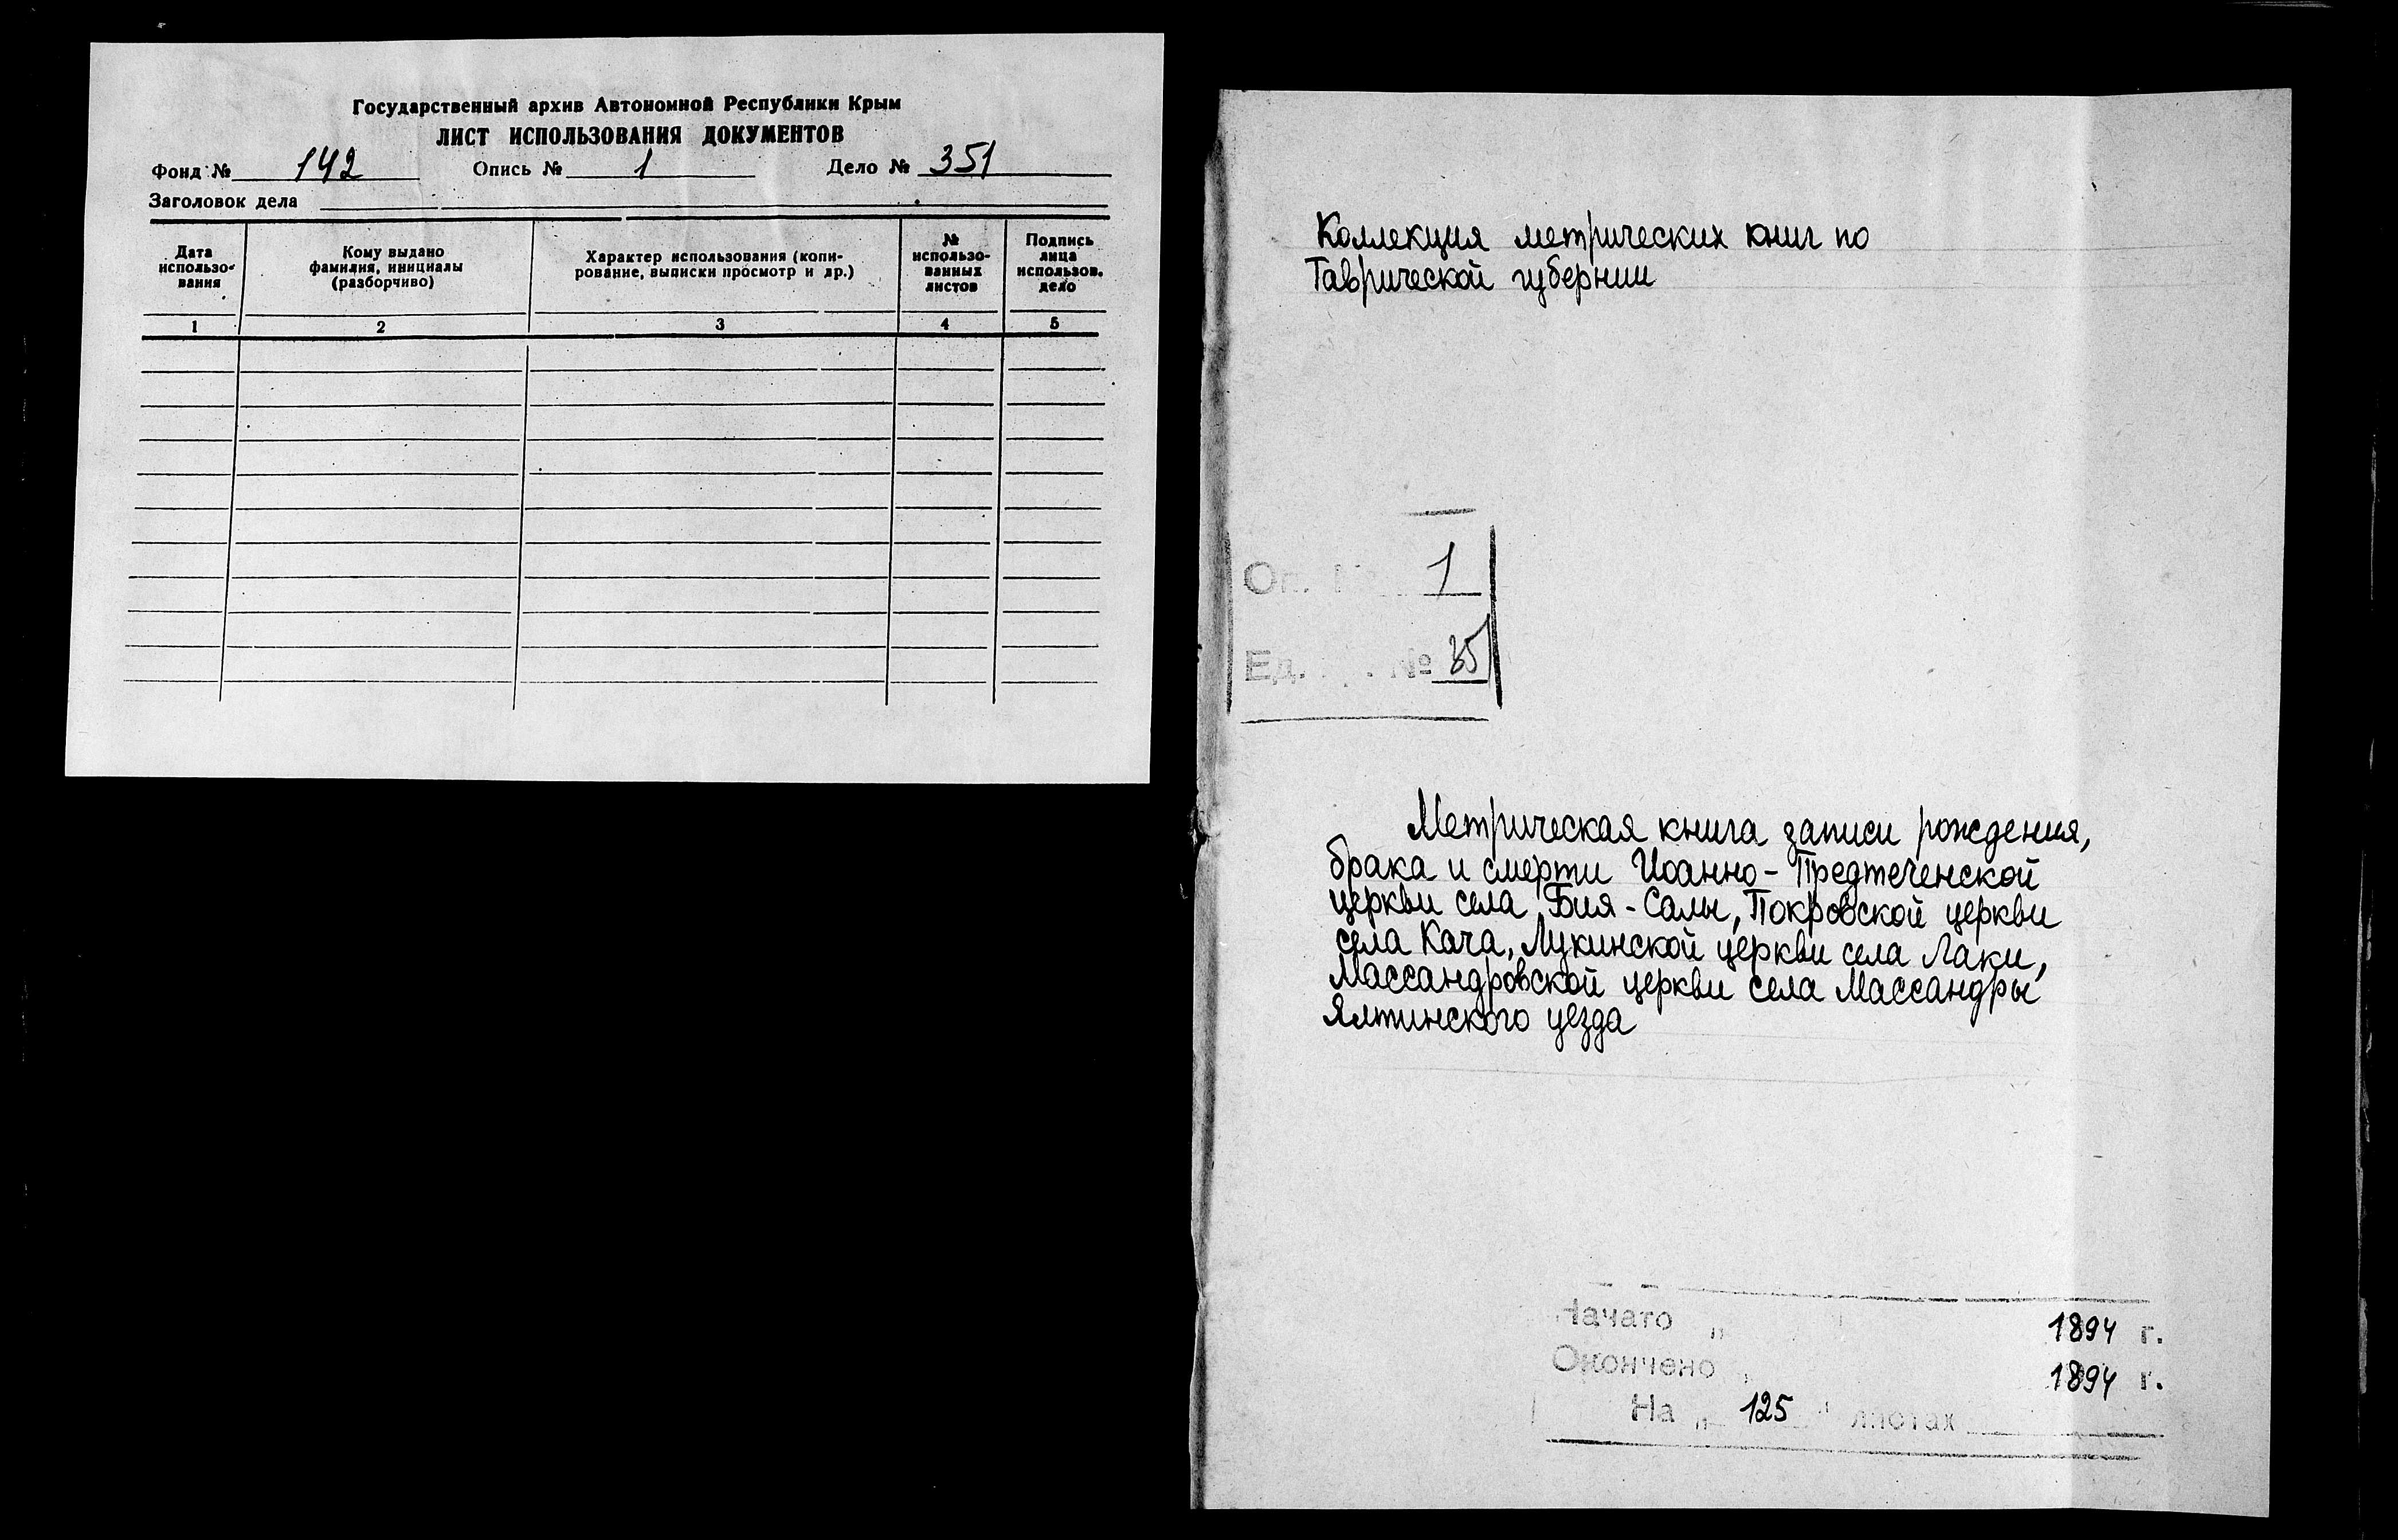 Государственный архив Автономной Республики Крым
ЛИСТ ИСПОЛЬЗОВАНИЯ ДОКУМЕНТОВ
Фонд № 142 Опись № 1 Дело № 351
Заголовок дела
Дата использо-вания
Кому выдано фамилия, инициалы (разборчиво)
Характер использования (копи-рование, выписки просмотр и др.)
№ использо-ванных листов
Подпись лица использов. дело
1 2 3 4 5
Коллекция метрических книг по
Таврической губернии
Оп. № 1
Ед. № 351
Метрическая книга записи рождения,
брака и смерти Иоанно-Предтеченской
церкви села Бия-Салы, Покровской церкви
села Кача, Лукинской церкви села Лаки,
Массандровской церкви села Массандры
Ялтинского уезда
Начато „ 1894 г.
Окончено „ 1894 г.
На „ 125 " листах